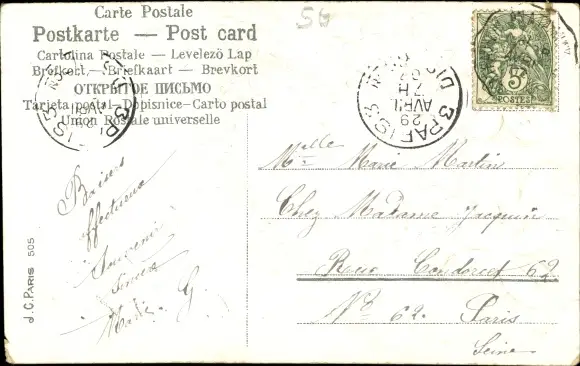 Carte Postale
Postkarte — Post card
Cartolina Postale — Levelezö Lap
Brefkort — Briefkaart — Brevkort
ОТКРЫТОЕ ПИСЬМО
Tarjeta postal — Dopisnice — Carto postal
Union Postale universelle
56
PARIS
PARIS 3
29
AVRIL
7H
5
POSTES
Baisers
Affectueux
Souvenir
G.
Mlle Marie Martin
Chez Madame Jacquin
Rue Condorcet 62
No 62. Paris
Seine
J.C. PARIS 505